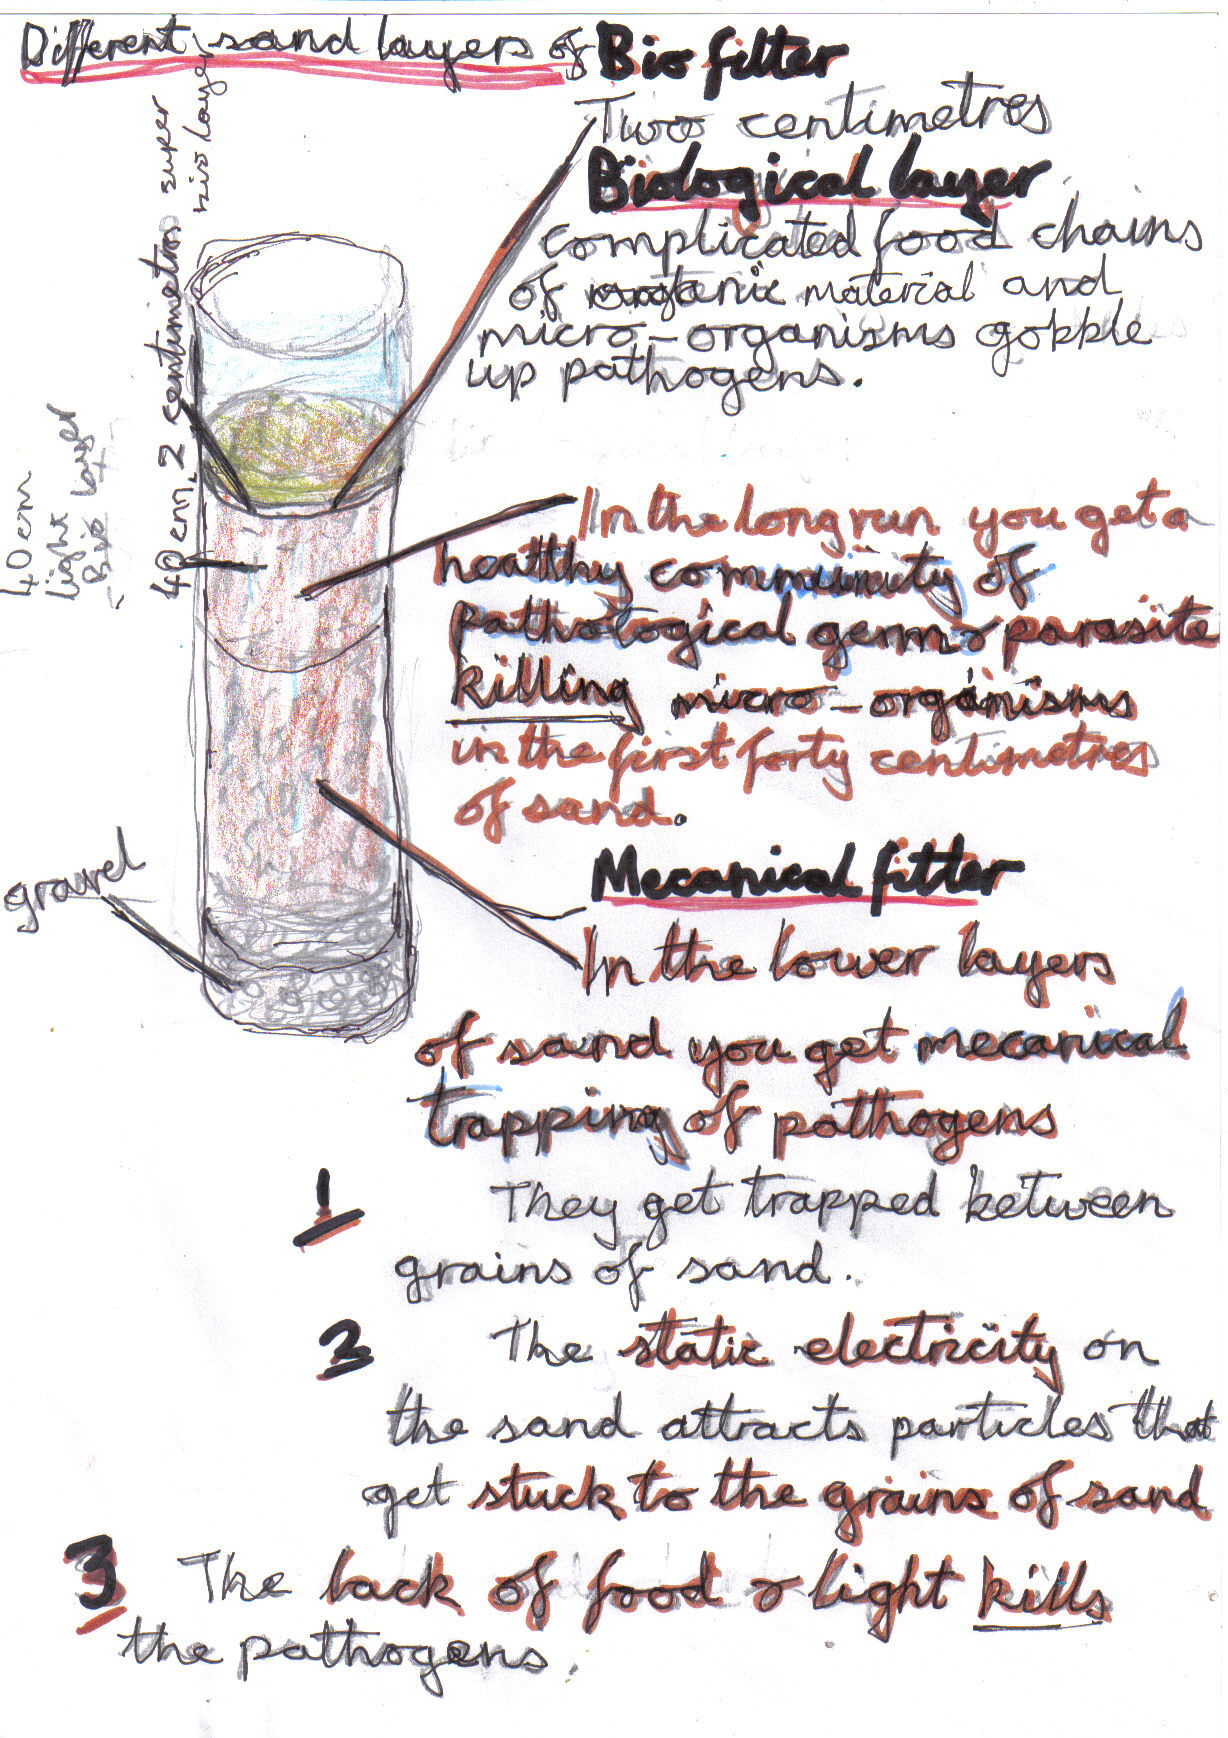 Different sand layers of Bio filter
Two centimetres
Biological layer
complicated food chains
of organic material and
micro-organisms gobble
up pathogens.
2 centimetros super
bio layer
40 cm
40 cm
light layer
Bio layer
In the long run you get a
healthy community of
pathological germ & parasite
killing micro-organisms
in the first forty centimetres
of sand.
gravel
Mecanical filter
In the lower layers
of sand you get mecanical
trapping of pathogens
1 They get trapped between
grains of sand.
2 The static electricity on
the sand attracts particles that
get stuck to the grains of sand
3 The lack of food & light kills
the pathogens.